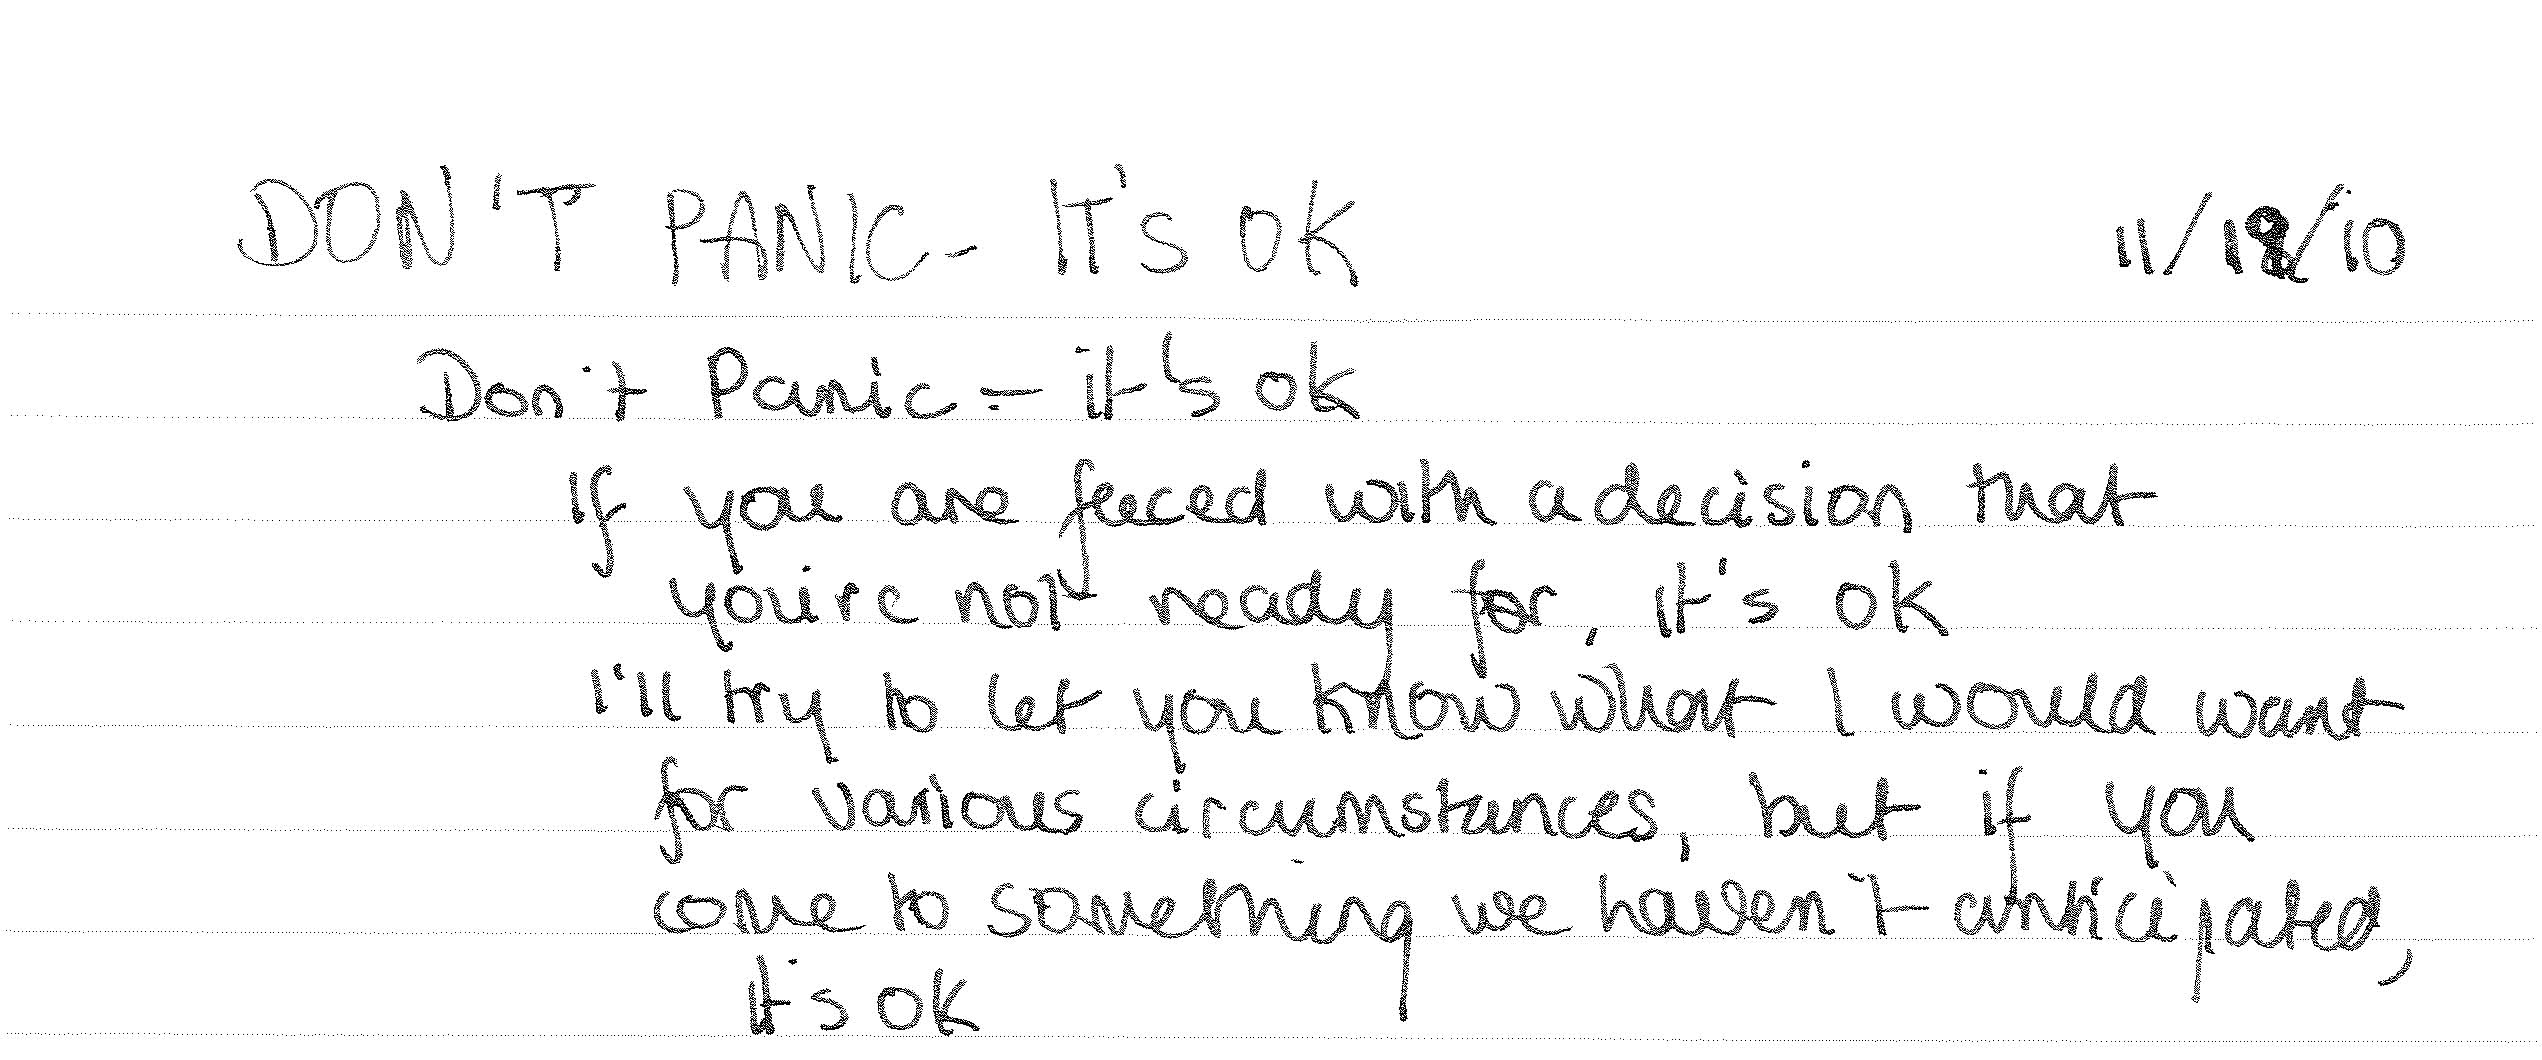 DON'T PANIC - IT'S OK
Don't Panic - it's ok
If you are faced with a decision that
you're not ready for, it's ok
I'll try to let you know what I would want
for various circumstances, but if you
come to something we haven't anticipated,
It's OK